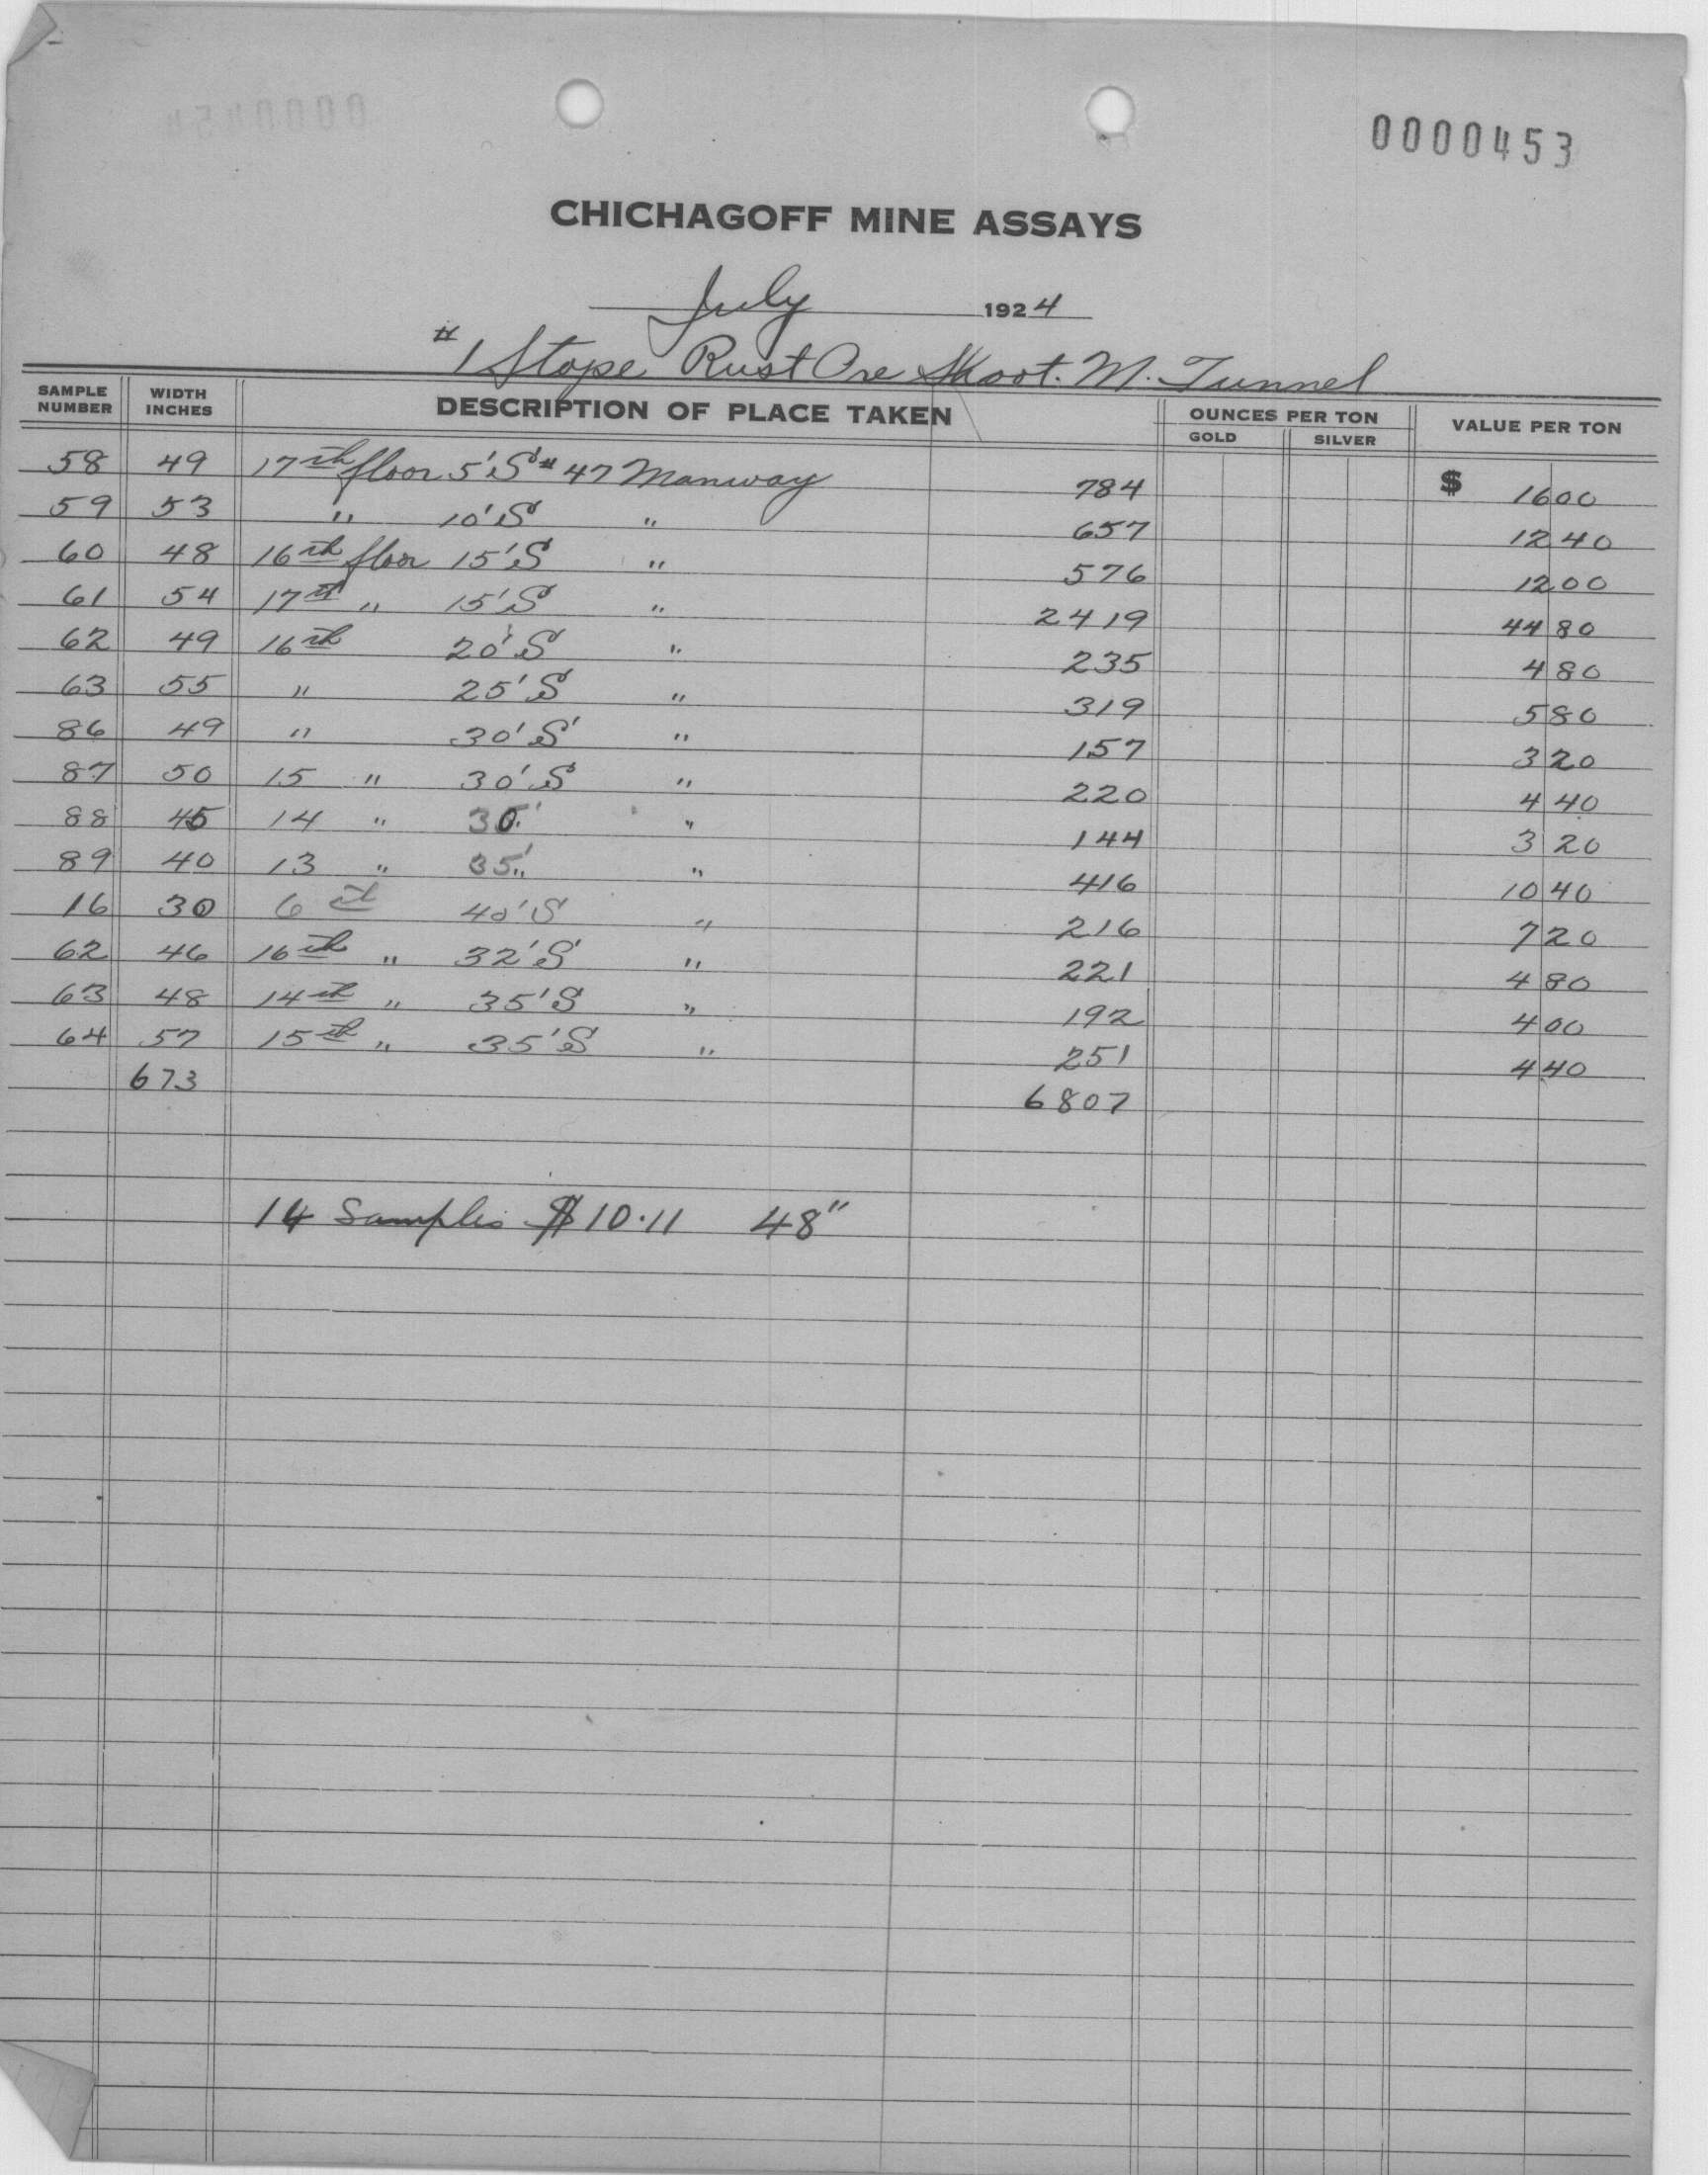 0000453
CHICHAGOFF MINE ASSAYS
July 1924
#1 Stope Rust Ore Shoot. M. Tunnel
SAMPLE NUMBER WIDTH INCHES DESCRIPTION OF PLACE TAKEN OUNCES PER TON GOLD SILVER VALUE PER TON
58 49 17th floor 5'S # 47 Manway 784 $ 16 00
59 53 " 10'S " 657 12 40
60 48 16th floor 15'S " 576 12 00
61 54 17th " 15'S " 2419 44 80
62 49 16th 20'S " 235 4 80
63 55 " 25'S " 319 5 80
86 49 " 30'S " 157 3 20
87 50 15 " 30'S " 220 4 40
88 45 14 " 30' " 144 3 20
89 40 13 " 35' " 416 10 40
16 30 6th 40'S " 216 7 20
62 46 16th " 32'S " 221 4 80
63 48 14th " 35'S " 192 4 00
64 57 15th " 35'S " 251 4 40
673 6807
14 Samples $10.11 48"